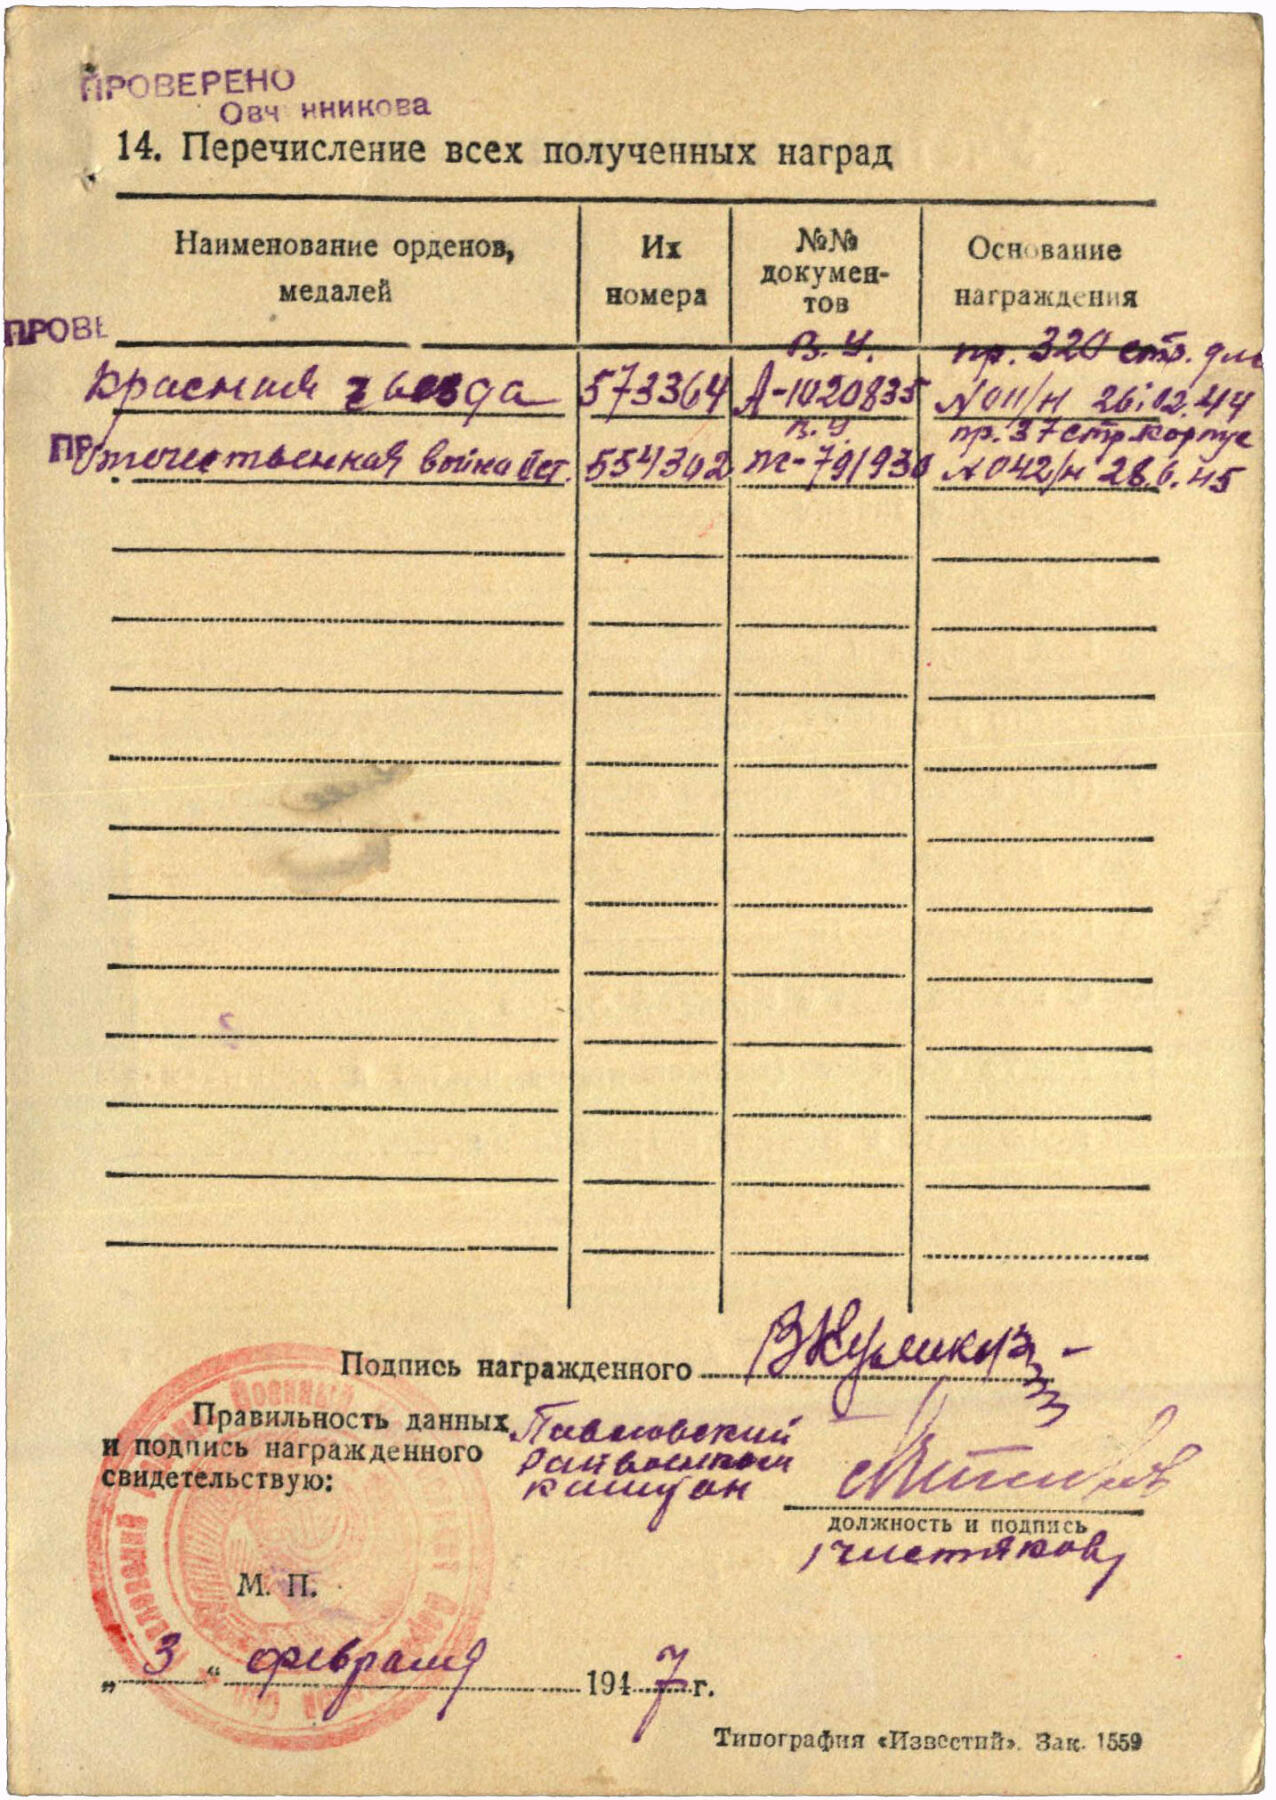 ПРОВЕРЕНО
Овч нникова
14. Перечисление всех полученных наград
Наименование орденов, медалей
Их номера
№№ докумен-
тов
Основание награждения
ПРОВЕ
В. У. пр. 320 стр. див
Красная звезда 573364 А-1020835 №011/н 26.02.44
В.У. пр. 37 стр. корпус
ПР
Отечественная война II ст. 554302 Ж-791930 №042/н 28.6.45
Подпись награжденного ВКуликов
Правильность данных
и подпись награжденного
свидетельствую:
Павловский
райвоенком
капитан
должность и подпись
/чистяков/
М. П.
„ 3 “ февраля 1947 г.
Типография «Известий». Зак. 1559